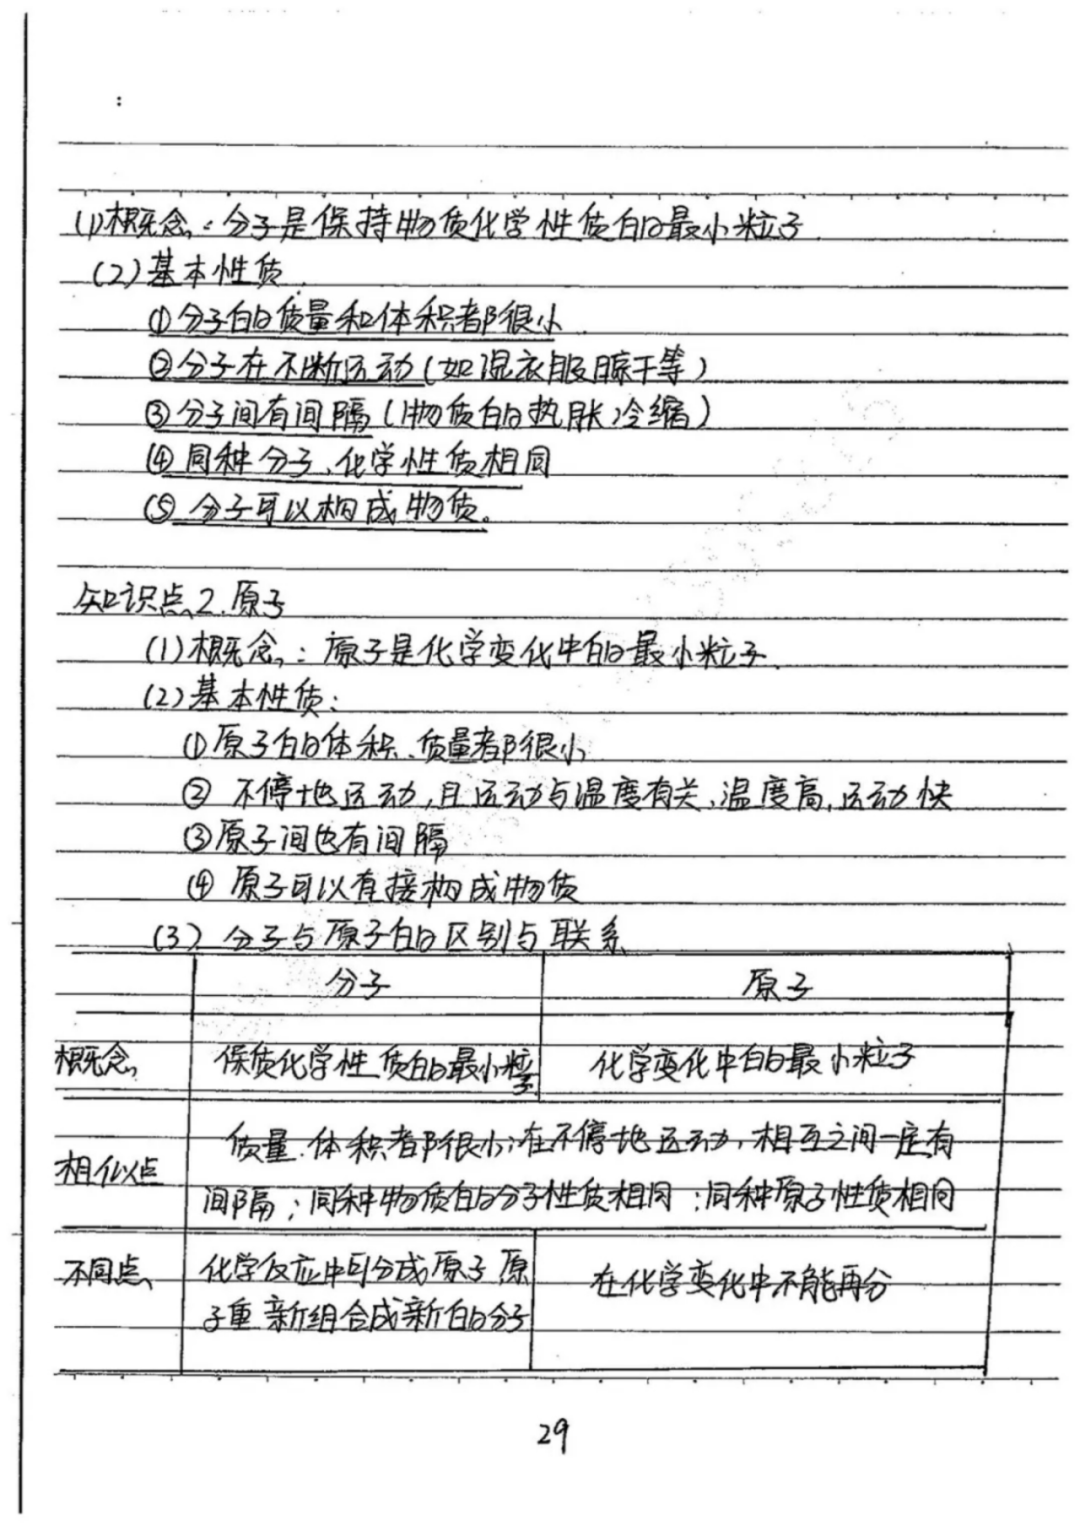 :
(1)概念：分子是保持物质化学性质的最小粒子.
(2)基本性质.
①分子的质量和体积都很小.
②分子在不断运动(如湿衣服晾干等)
③分子间有间隔(物质的热胀冷缩)
④同种分子、化学性质相同
⑤分子可以构成物质。
知识点2.原子
(1)概念：原子是化学变化中的最小粒子.
(2)基本性质：
①原子的体积、质量都很小
②不停地运动，且运动与温度有关、温度高，运动快
③原子间也有间隔
④原子可以直接构成物质
(3)分子与原子的区别与联系
分子 原子
概念 保质化学性质的最小粒子 化学变化中的最小粒子
相似点 质量、体积都很小；在不停地运动，相互之间一定有
间隔；同种物质的分子性质相同；同种原子性质相同
不同点 化学反应中可分成原子 原 在化学变化中不能再分
子重新组合成新的分子
29